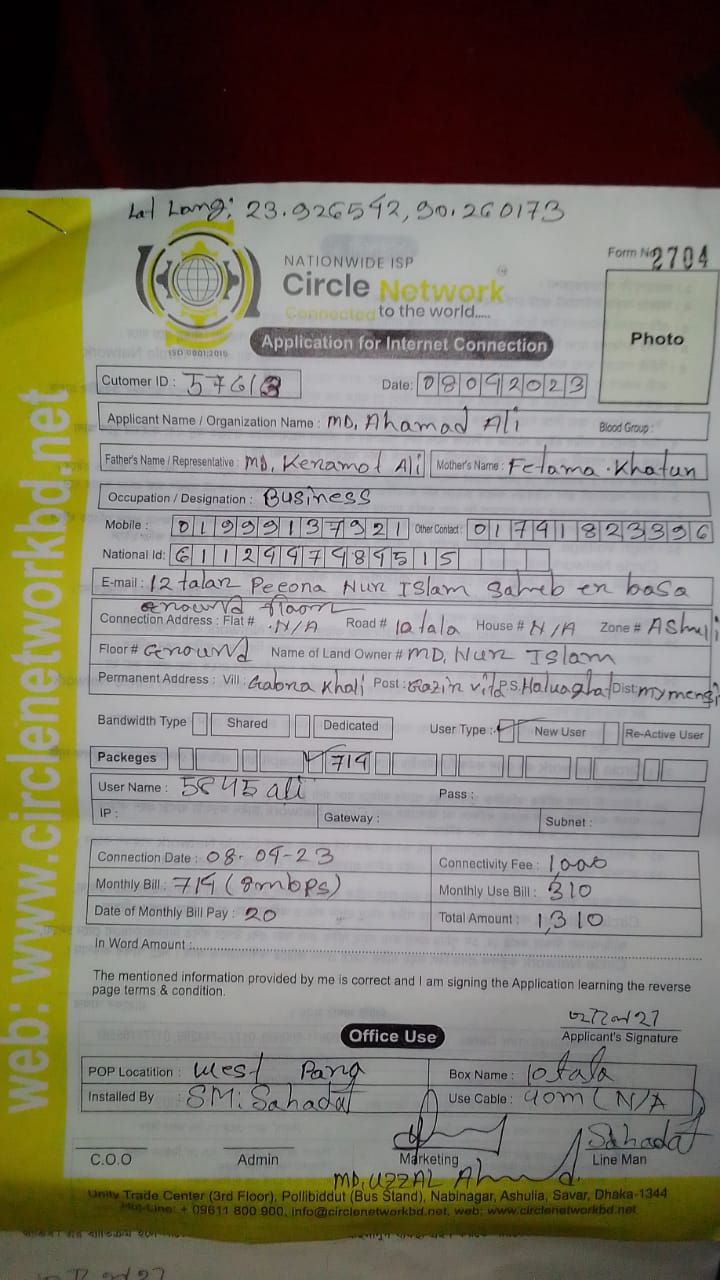 Lat Lang: 23.926542, 90.260173
NATIONWIDE ISP
Form No 2704
Circle Network
Connected to the world.....
ISO 9001:2015
Application for Internet Connection
Photo
Cutomer ID : 5761 Date: 08092023
Applicant Name / Organization Name : MD. Ahamad Ali Blood Group :
Father's Name / Representative : MD. Keramot Ali Mother's Name : Fetama Khatun
Occupation / Designation : Business
Mobile : 01999137921 Other Contact : 01741823396
National Id:
E-mail : 12 talar Nur ISlam Saheb er basa
Ground floor
Connection Address : Flat # N/A Road # 10 tala House # N/A Zone # Ashuli
Floor # Ground Name of Land Owner # MD. Nur Islam
Permanent Address : Vill : Gabra Khali Post : Gazir P.S. Haluaghat Dist: mymensi
Bandwidth Type Shared Dedicated User Type : New User Re-Active User
Packeges 714
User Name : 5845 ali Pass :
IP : Gateway : Subnet :
Connection Date : 08-09-23 Connectivity Fee : 1,000
Monthly Bill : 714 (8mbps) Monthly Use Bill : 310
Date of Monthly Bill Pay : 20 Total Amount : 1,310
In Word Amount :
The mentioned information provided by me is correct and I am signing the Application learning the reverse
page terms & condition.
Applicant's Signature
Office Use
POP Locatition : West Para Box Name : 10 tala
Installed By : SM: Sahadat Use Cable : 40m (N/A
Sahadat
C.O.O Admin Marketing Line Man
MD. UZZAL Ahmed.
Unity Trade Center (3rd Floor), Pollibiddut (Bus Stand), Nabinagar, Ashulia, Savar, Dhaka-1344
Hot-Line: + 09611 800 900, info@circlenetworkbd.net, web: www.circlenetworkbd.net
web: www.circlenetworkbd.net